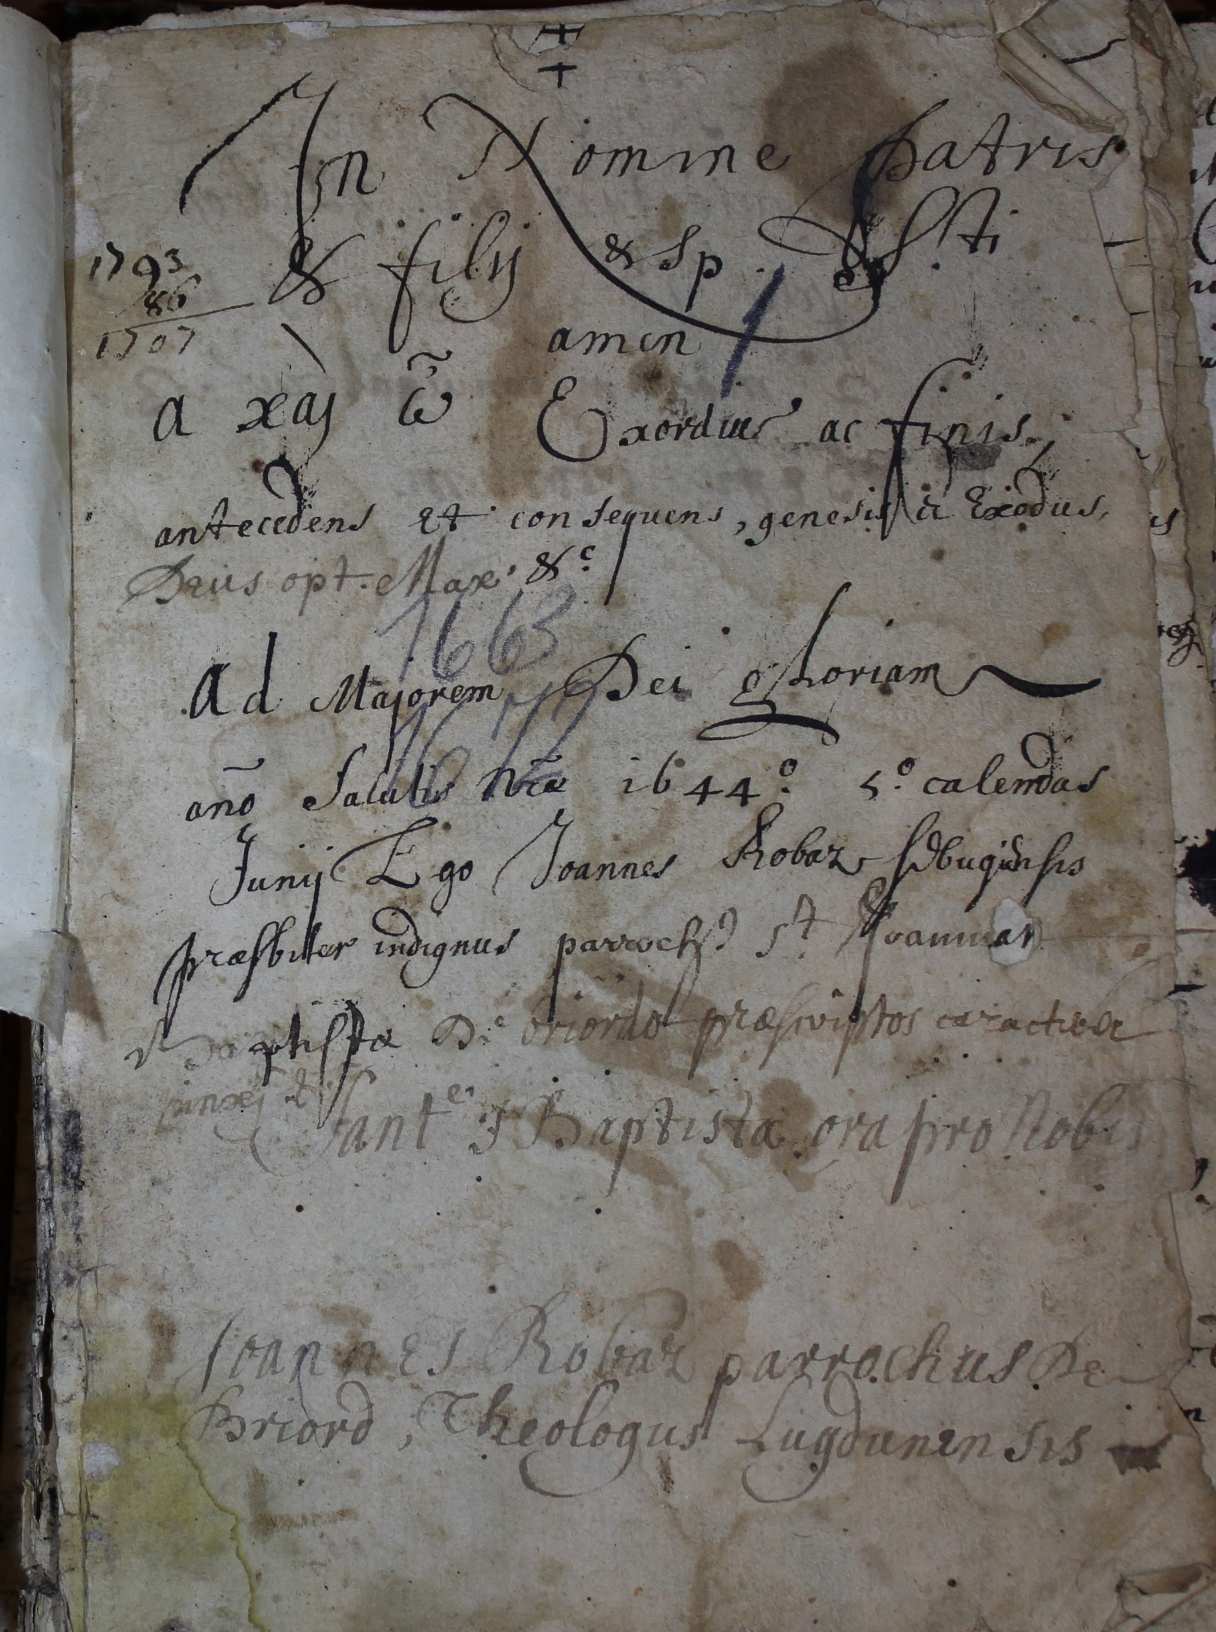 In Nomine Patris
1793
86
1707
& filij & sp. Sti
amen 1
a xaj ω̃ Exordius ac finis,
antecedens et consequens, genesis et Exodus,
Deus opt. Max. &c
1663
Ad Majorem Dei gloriam
1672
año Salutis nr̃æ 1644º. 5.º calendas
Junij Ego Joannes Robaz
præsbiter indignus parroch9 st Joannis
Baptistæ De briordo præscriptos caracteres
pinxi &
Sante J Baptista ora pro Nobis
Joannes Robaz parrochus De
Briord, Theologus Lugdunensis